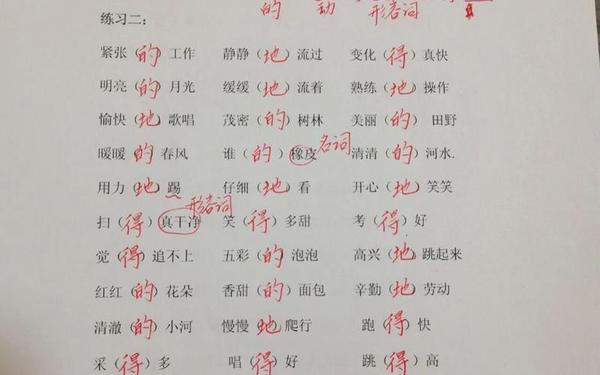 的 动 形容词
练习二：
紧张（的）工作 静静（地）流过 变化（得）真快
明亮（的）月光 缓缓（地）流着 熟练（地）操作
愉快（地）歌唱 茂密（的）树林 美丽（的）田野
暖暖（的）春风 谁（的）橡皮 名词 清清（的）河水.
用力（地）踢 仔细（地）看 开心（地）笑笑
形容词
扫（得）真干净 笑（得）多甜 考（得）好
觉（得）追不上 五彩（的）泡泡 高兴（地）跳起来
红红（的）花朵 香甜（的）面包 辛勤（地）劳动
清澈（的）小河 慢慢（地）爬行 跑（得）快
采（得）多 唱（得）好 跳（得）高